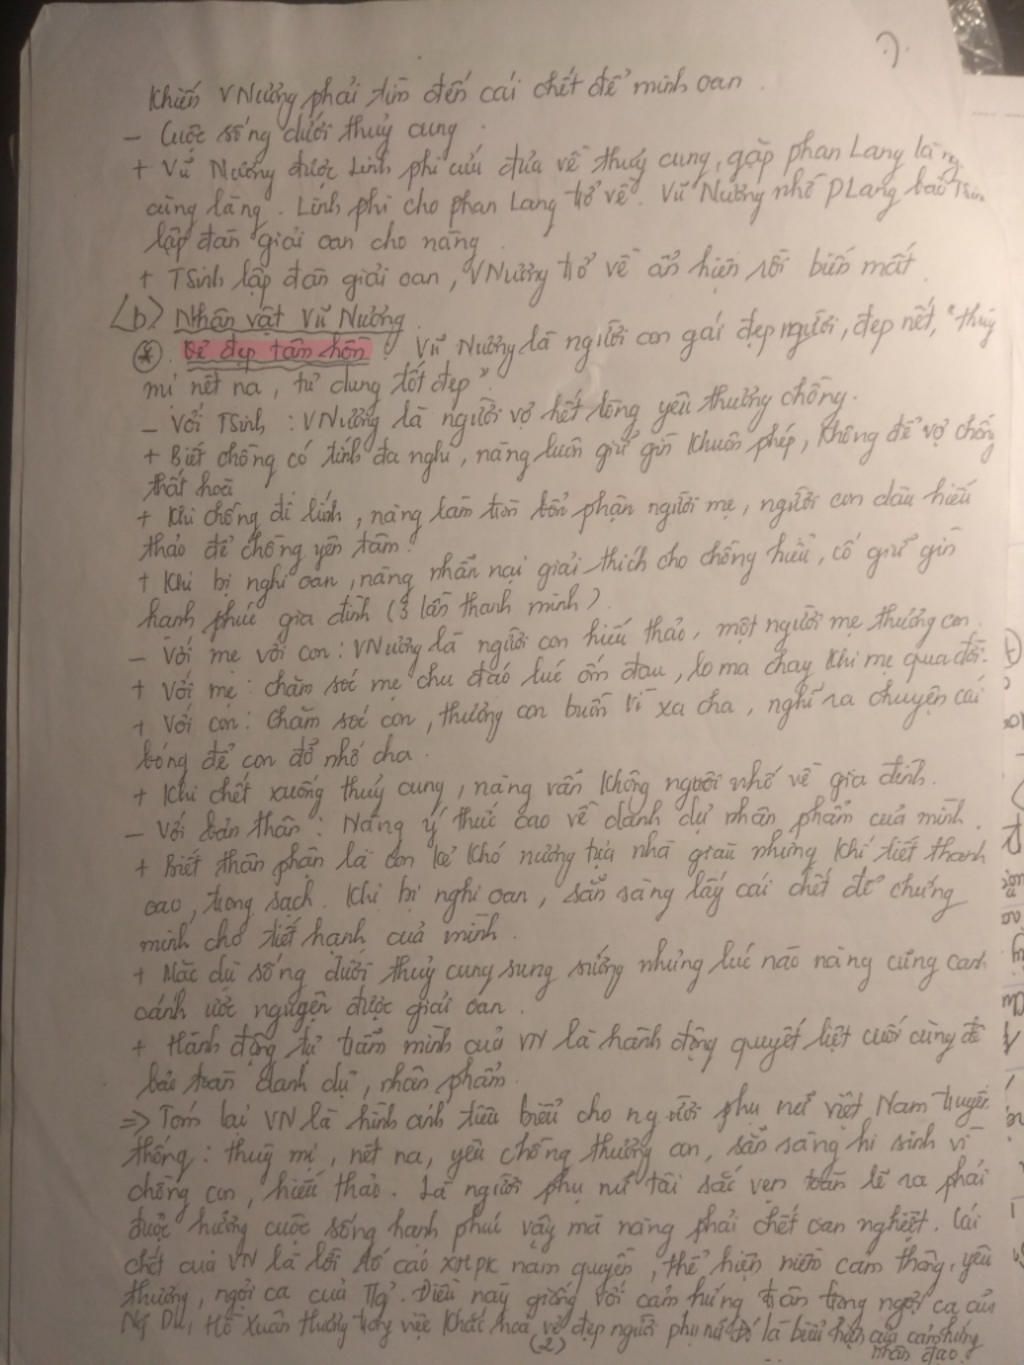 khiến VNương phải tìm đến cái chết để minh oan.
- Cuộc sống dưới thuỷ cung.
+ Vũ Nương được Linh phi cứu đưa về thuỷ cung, gặp phan Lang là ng
cùng làng. Linh phi cho phan Lang trở về. Vũ Nương nhờ PLang bảo TSinh
lập đàn giải oan cho nàng.
+ TSinh lập đàn giải oan, VNương trở về ẩn hiện rồi biến mất.
b) Nhân vật Vũ Nương
* Vẻ đẹp tâm hồn: Vũ Nương là người con gái đẹp người, đẹp nết, "thuỳ
mị nết na, tư dung tốt đẹp".
- Với TSinh: VNương là người vợ hết lòng yêu thương chồng.
+ Biết chồng có tính đa nghi, nàng luôn giữ gìn khuôn phép, không để vợ chồng
thất hoà
+ Khi chồng đi lính, nàng làm tròn bổn phận người mẹ, người con dâu hiếu
thảo để chồng yên tâm.
+ Khi bị nghi oan, nàng nhẫn nại giải thích cho chồng hiểu, cố giữ gìn
hạnh phúc gia đình (3 lần thanh minh).
- Với mẹ với con: VNương là người con hiếu thảo, một người mẹ thương con.
+ Với mẹ: chăm sóc mẹ chu đáo lúc ốm đau, lo ma chay khi mẹ qua đời.
+ Với con: Chăm sóc con, thương con buồn vì xa cha, nghĩ ra chuyện cái
bóng để con đỡ nhớ cha.
+ Khi chết xuống thuỷ cung, nàng vẫn không nguôi nhớ về gia đình.
- Với bản thân: Nàng ý thức cao về danh dự nhân phẩm của mình.
+ Biết thân phận là con kẻ khó nương tựa nhà giàu nhưng khí tiết thanh
cao, trong sạch. Khi bị nghi oan, sẵn sàng lấy cái chết để chứng
minh cho tiết hạnh của mình.
+ Mặc dù sống dưới thuỷ cung sung sướng nhưng lúc nào nàng cũng canh
cánh ước nguyện được giải oan.
+ Hành động tự trẫm mình của VN là hành động quyết liệt cuối cùng để
bảo toàn danh dự, nhân phẩm.
=> Tóm lại VN là hình ảnh tiêu biểu cho người phụ nữ việt Nam truyền
thống: thuỳ mị, nết na, yêu chồng thương con, sẵn sàng hi sinh vì
chồng con, hiếu thảo. Là người phụ nữ tài sắc vẹn toàn lẽ ra phải
được hưởng cuộc sống hạnh phúc vậy mà nàng phải chết oan nghiệt. Cái
chết của VN là lời tố cáo XHPK nam quyền, thể hiện niềm cảm thông, yêu
thương, ngợi ca của Tg. Điều này giống với cảm hứng trân trọng ngợi ca của
Ng Du, Hồ Xuân Hương trong việc khắc hoạ vẻ đẹp người phụ nữ đó là biểu hiện của cảm hứng
nhân đạo.
(2)